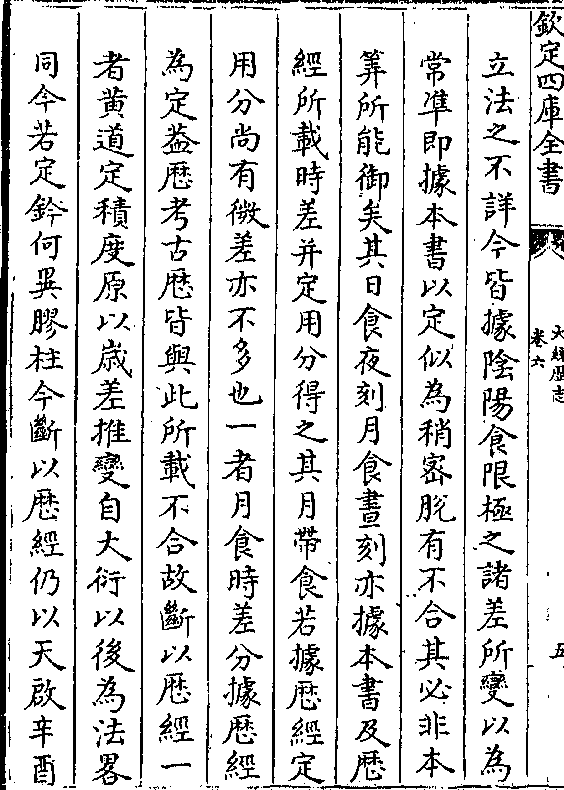 欽定四庫全書
卷六
立法之不詳今皆據陰陽食限極之諸差所變以為
常凖即據本書以定似為稍密脫有不合其必非本
筭所能御矣其日食夜刻月食晝刻亦據本書及歴
經所載時差并定用分得之其月帶食若據歴經定
用分尚有微差亦不多也一者月食時差分據歴經
為定葢歴考古歴皆與此所載不合故斷以歴經一
者黄道定積度原以歳差推變自大衍以後為法畧
同今若定鈐何異膠柱今斷以歴經仍以天啟辛酉